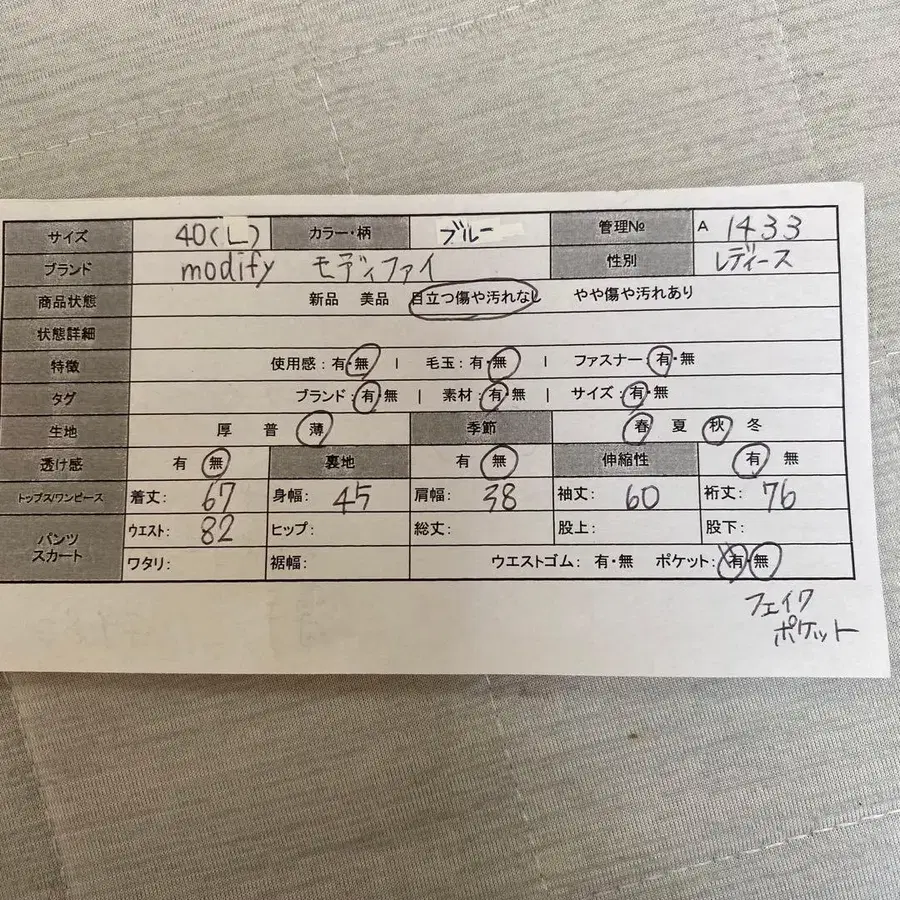 サイズ 40(L) カラー・柄 ブルー 管理№ A 1433
ブランド modify モディファイ 性別 レディース
商品状態 新品 美品 目立つ傷や汚れなし やや傷や汚れあり
状態詳細
特徴 使用感:有・無 | 毛玉:有・無 | ファスナー:有・無
タグ ブランド:有・無 | 素材:有・無 | サイズ:有・無
生地 厚 普 薄 季節 春 夏 秋 冬
透け感 有 無 裏地 有 無 伸縮性 有 無
トップス/ワンピース 着丈: 67 身幅: 45 肩幅: 38 袖丈: 60 裄丈: 76
パンツ スカート ウエスト: 82 ヒップ: 総丈: 股上: 股下:
ワタリ: 裾幅: ウエストゴム: 有・無 ポケット: 有・無
フェイク
ポケット